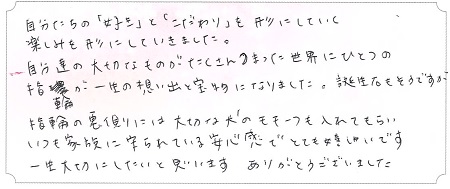 自分たちの「好き」と「こだわり」を形にしていく
楽しみを形にしていきました。
自分達の大切なものがたくさんつまった世界にひとつの
指輪が一生の想い出と宝物になりました。誕生石もそうですが
指輪の裏側りには大切な犬のモモーつも入れてもらい
いつも家族に守られている安心感でとても嬉しいです
一生大切にしたいと思います ありがとうございました